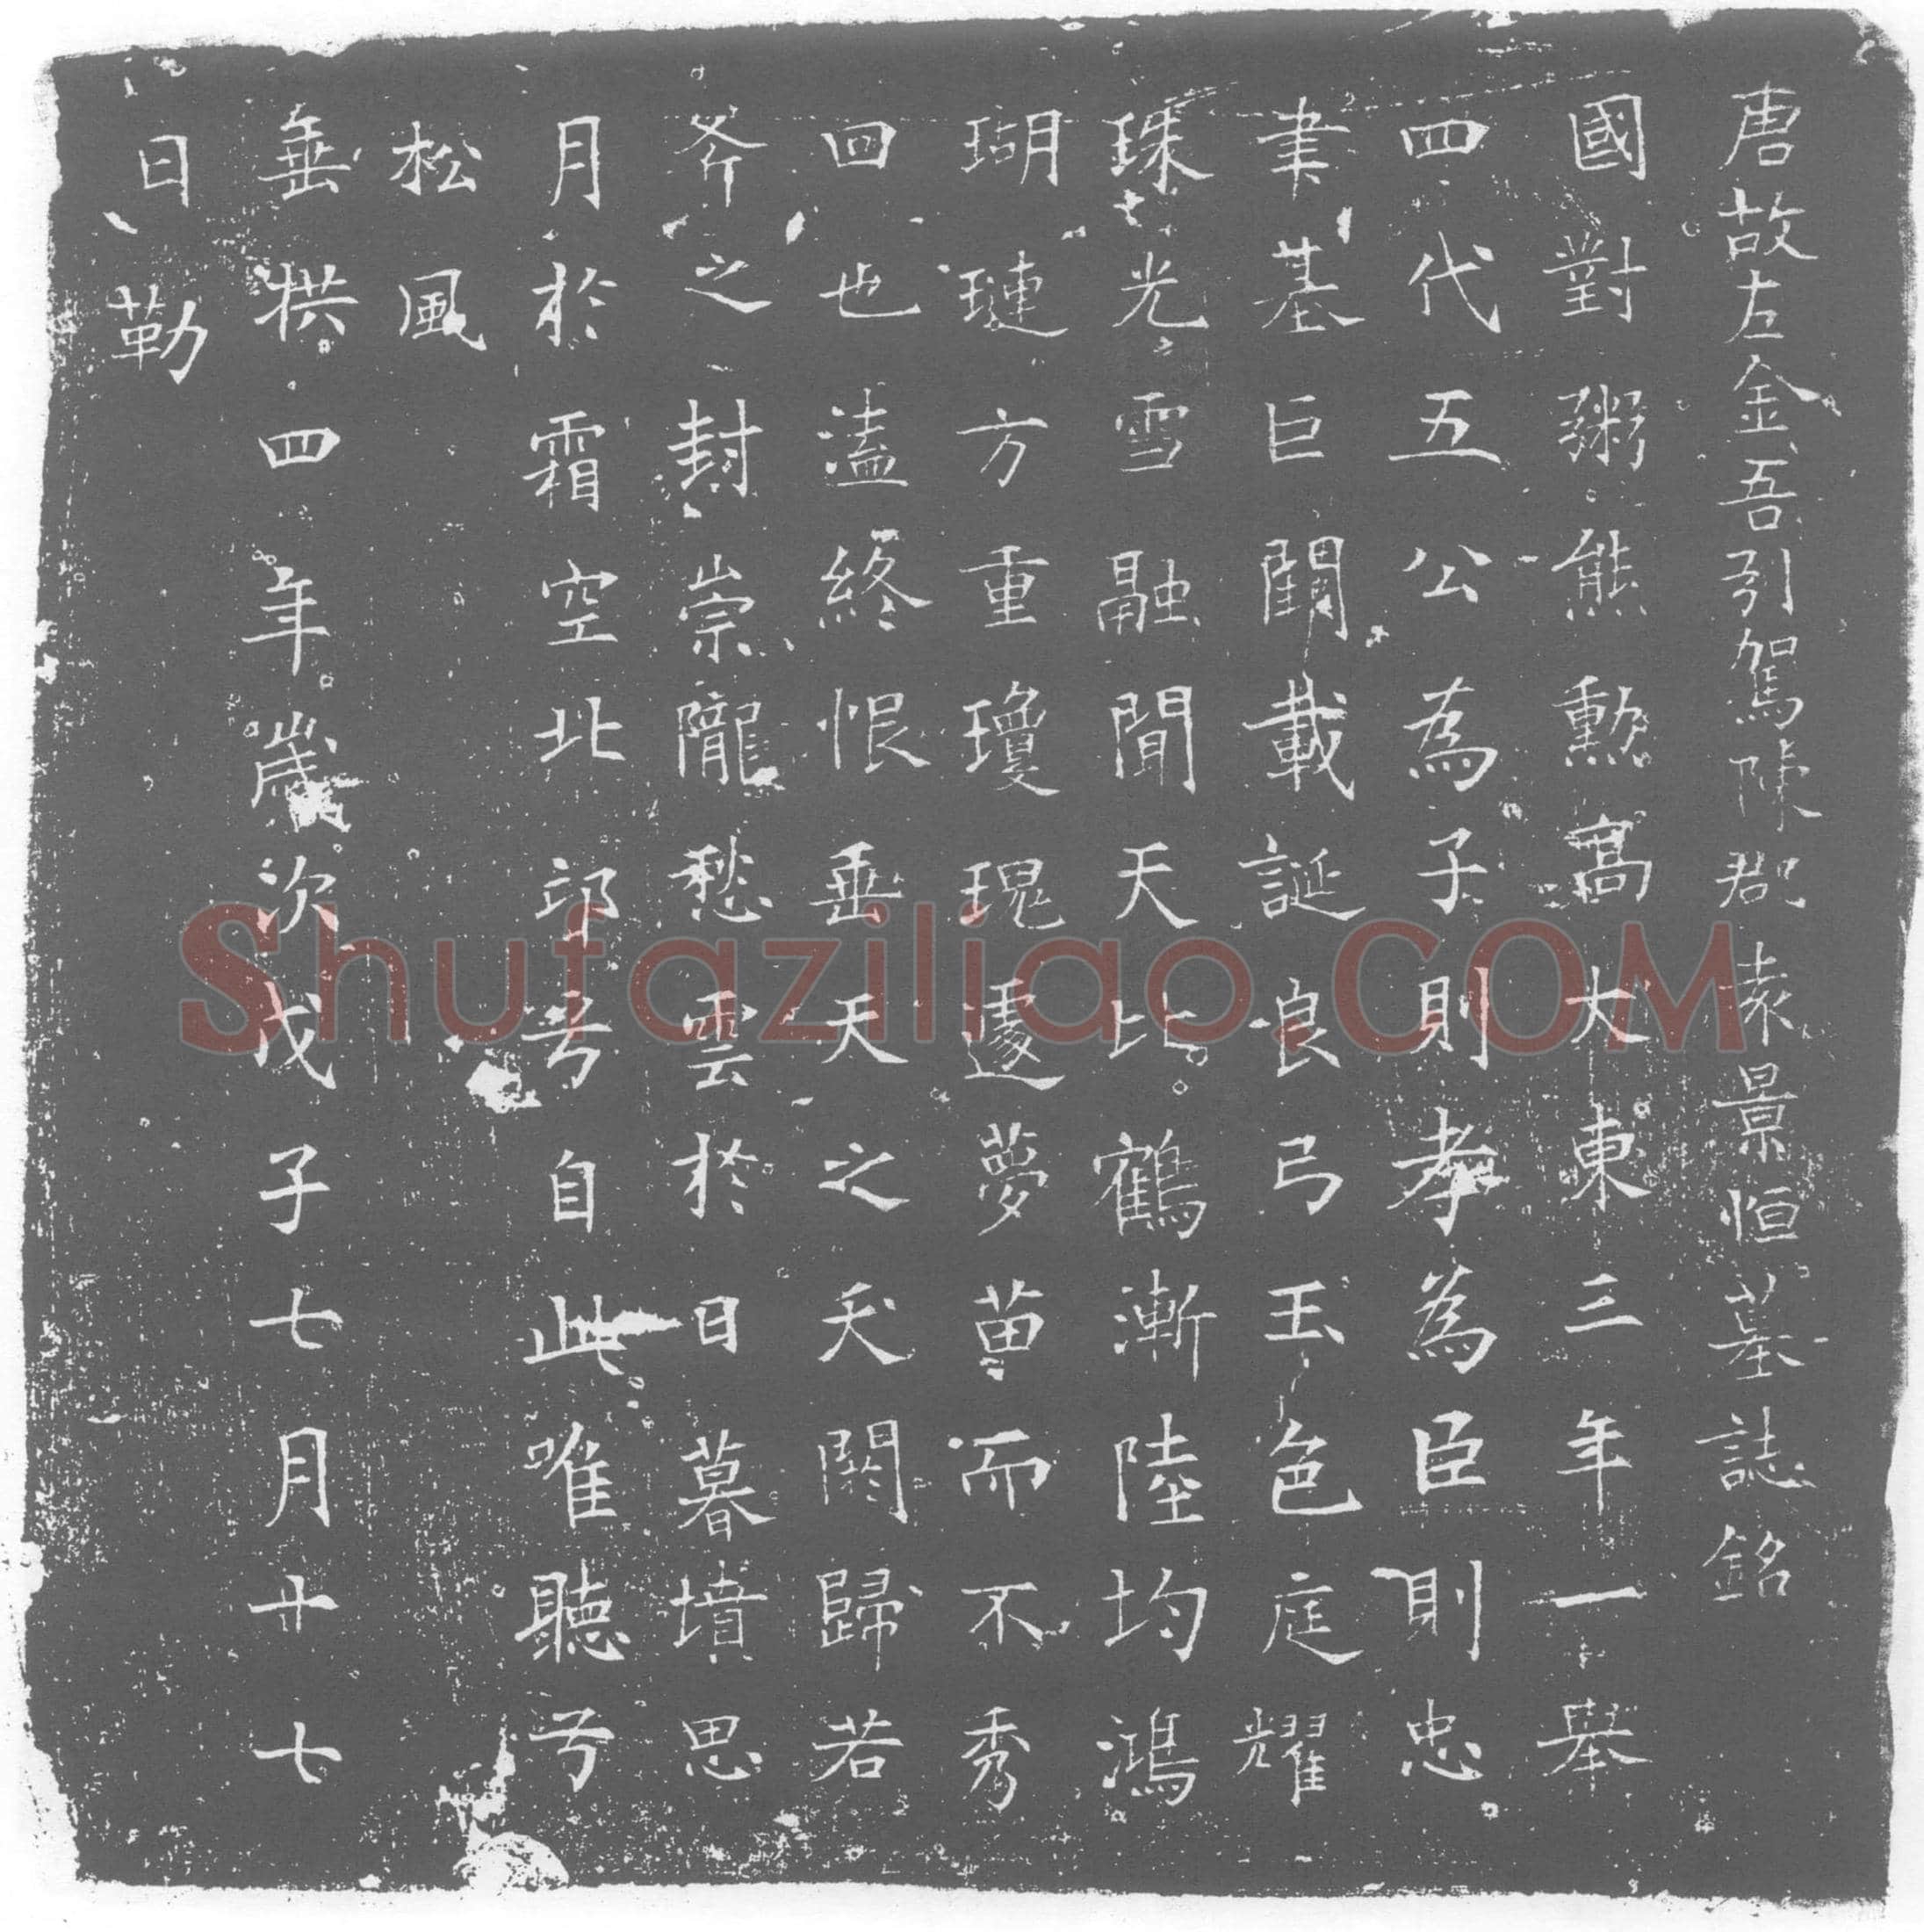 唐故左金吾引駕陳郡袁景恒墓誌銘
國對粥熊勲高大東三年一舉
四代五公為子則孝為臣則忠
聿基巨閈載誕良弓玉色庭耀
珠光雪融聞天比鶴漸陸均鴻
瑚璉方重瓊瑰遽夢苗而不秀
回也溘終恨垂天之夭閼歸若
斧之封崇隴愁雲於日暮墳思
月於霜空北邙兮自此唯聽兮
松風
垂拱四年歲次戊子七月廿七
日勒
Shufaziliao.COM